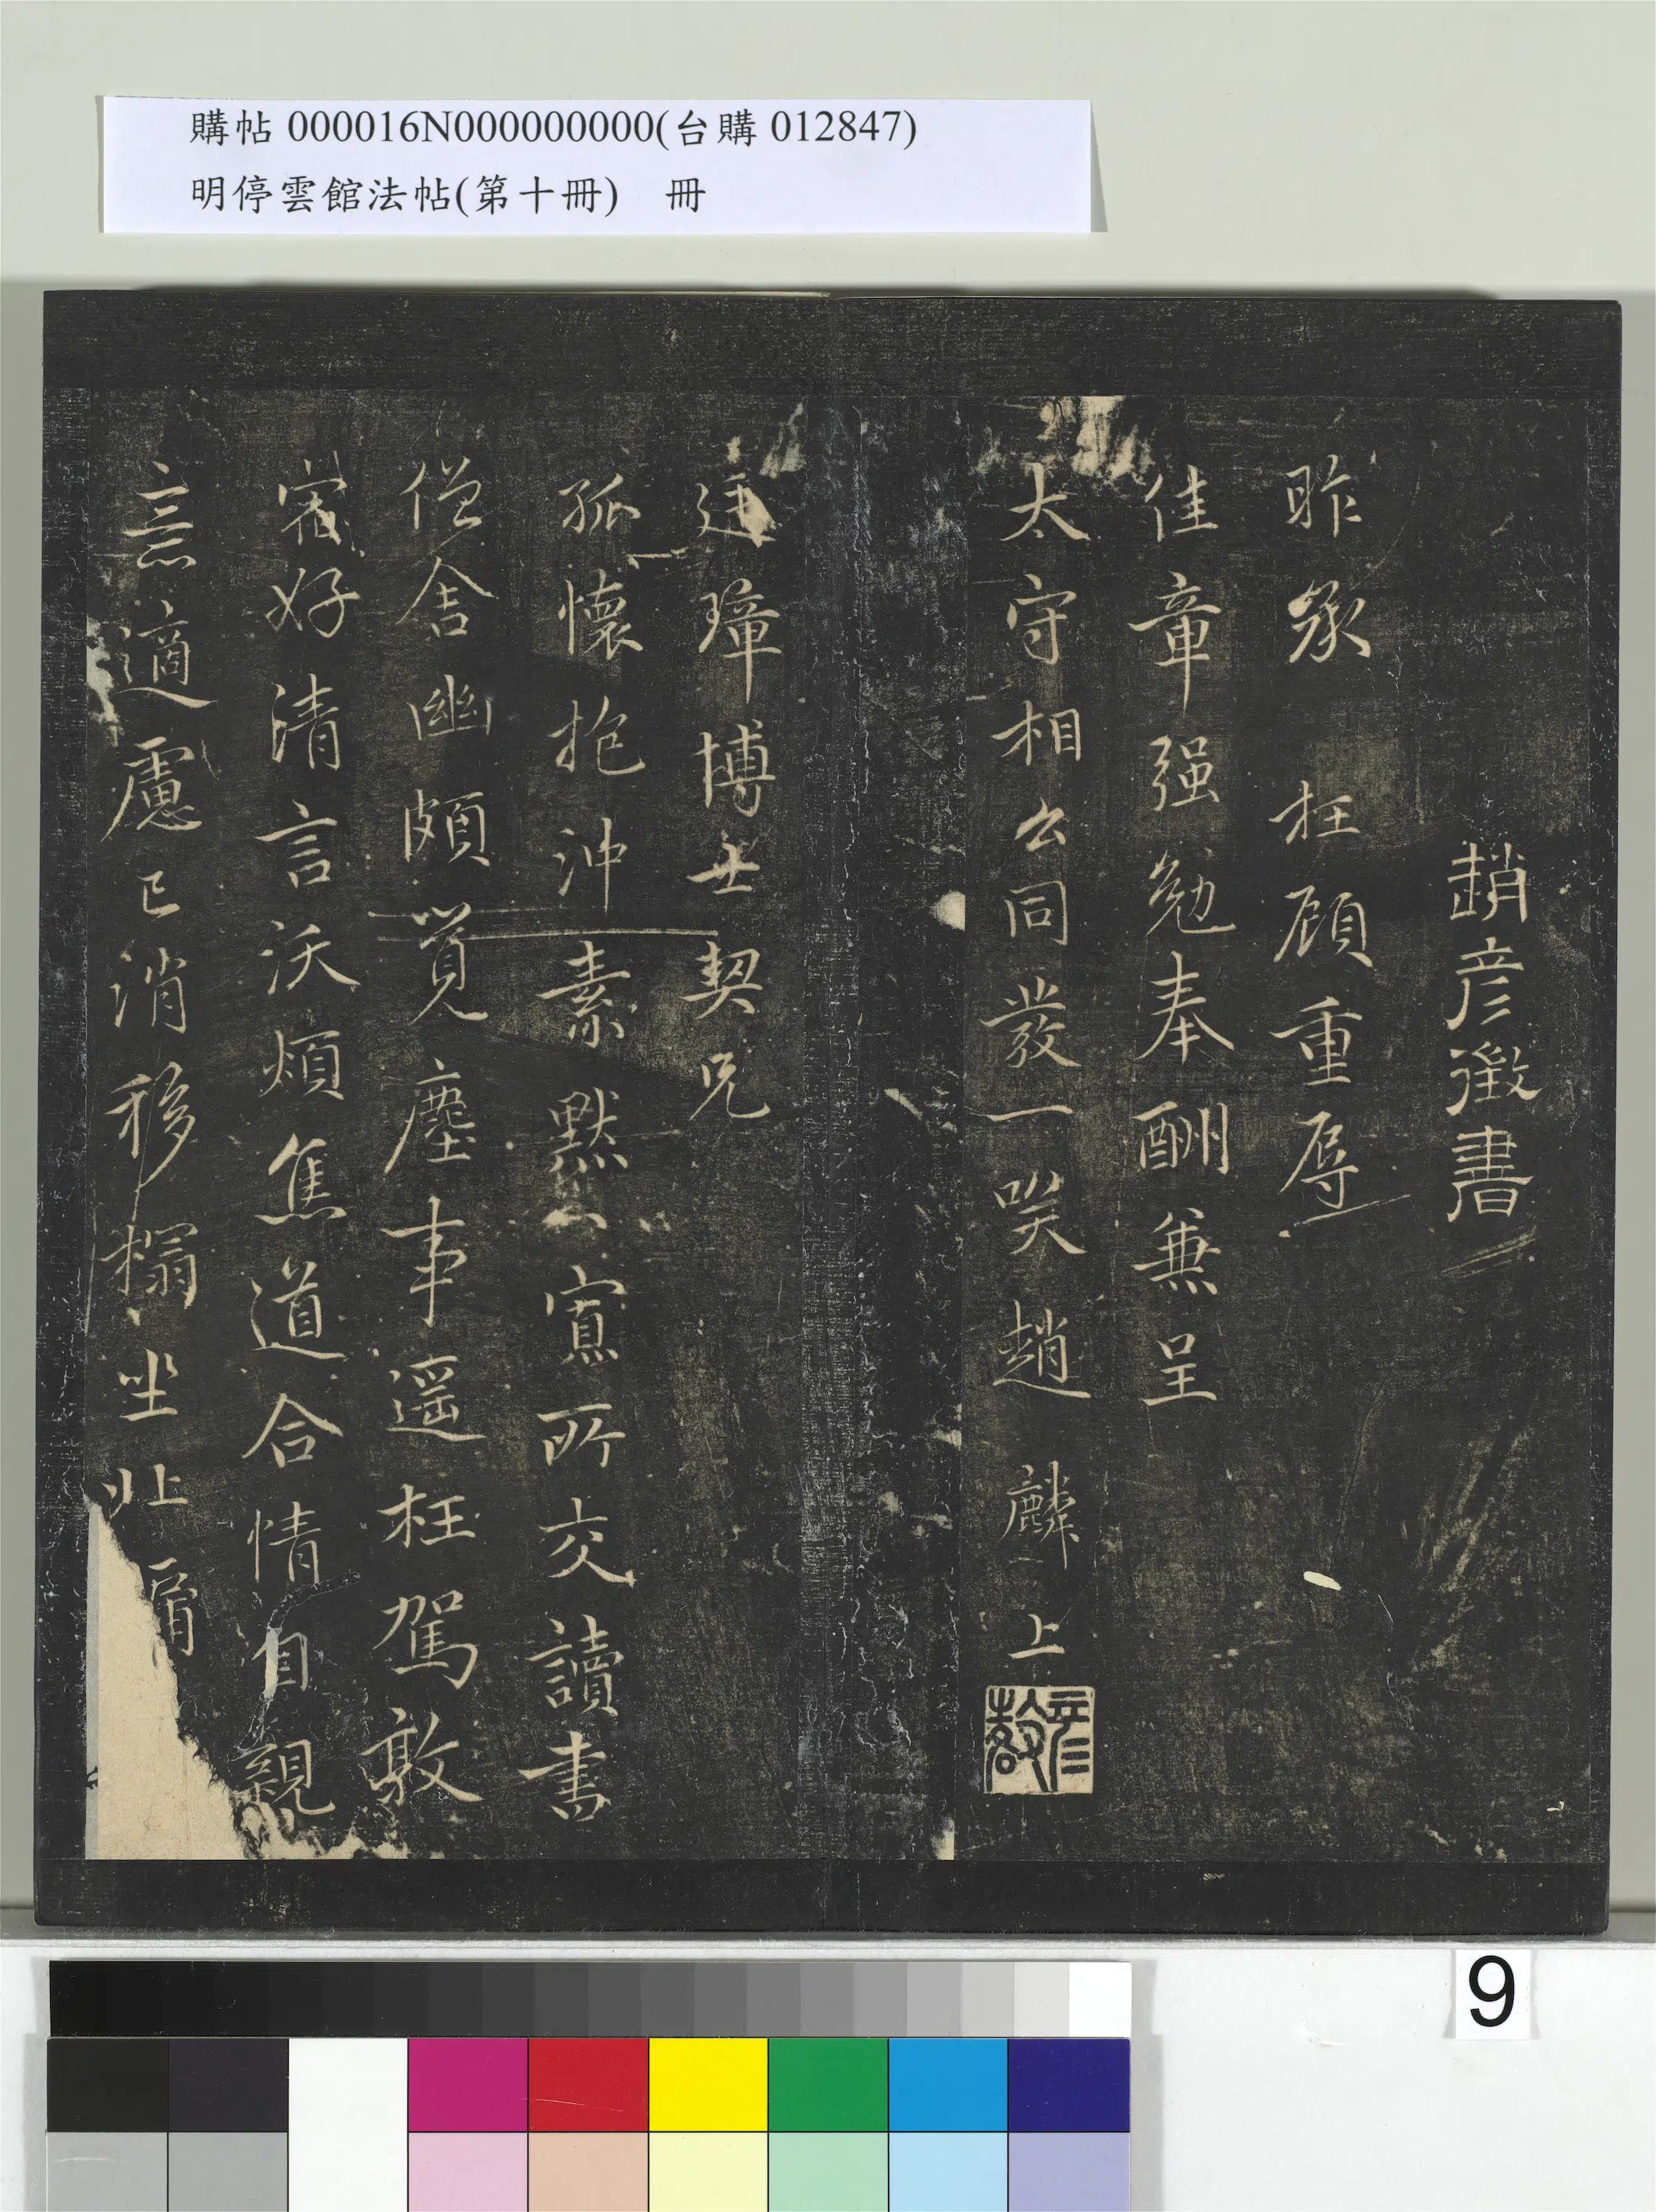 購帖 000016N000000000(台購 012847)
明停雲館法帖(第十冊)　冊
趙彦徵書
昨承　枉顧重辱
佳章强勉奉酬兼呈
太守相公同發一笑趙　麟　上
彦
廷璋博士契兄
孤懷抱沖素默默寡所交讀書
僧舍幽頗覺塵事遥枉駕敦
宿好清言沃煩焦道合情自親
意適慮已消移榻坐北
9